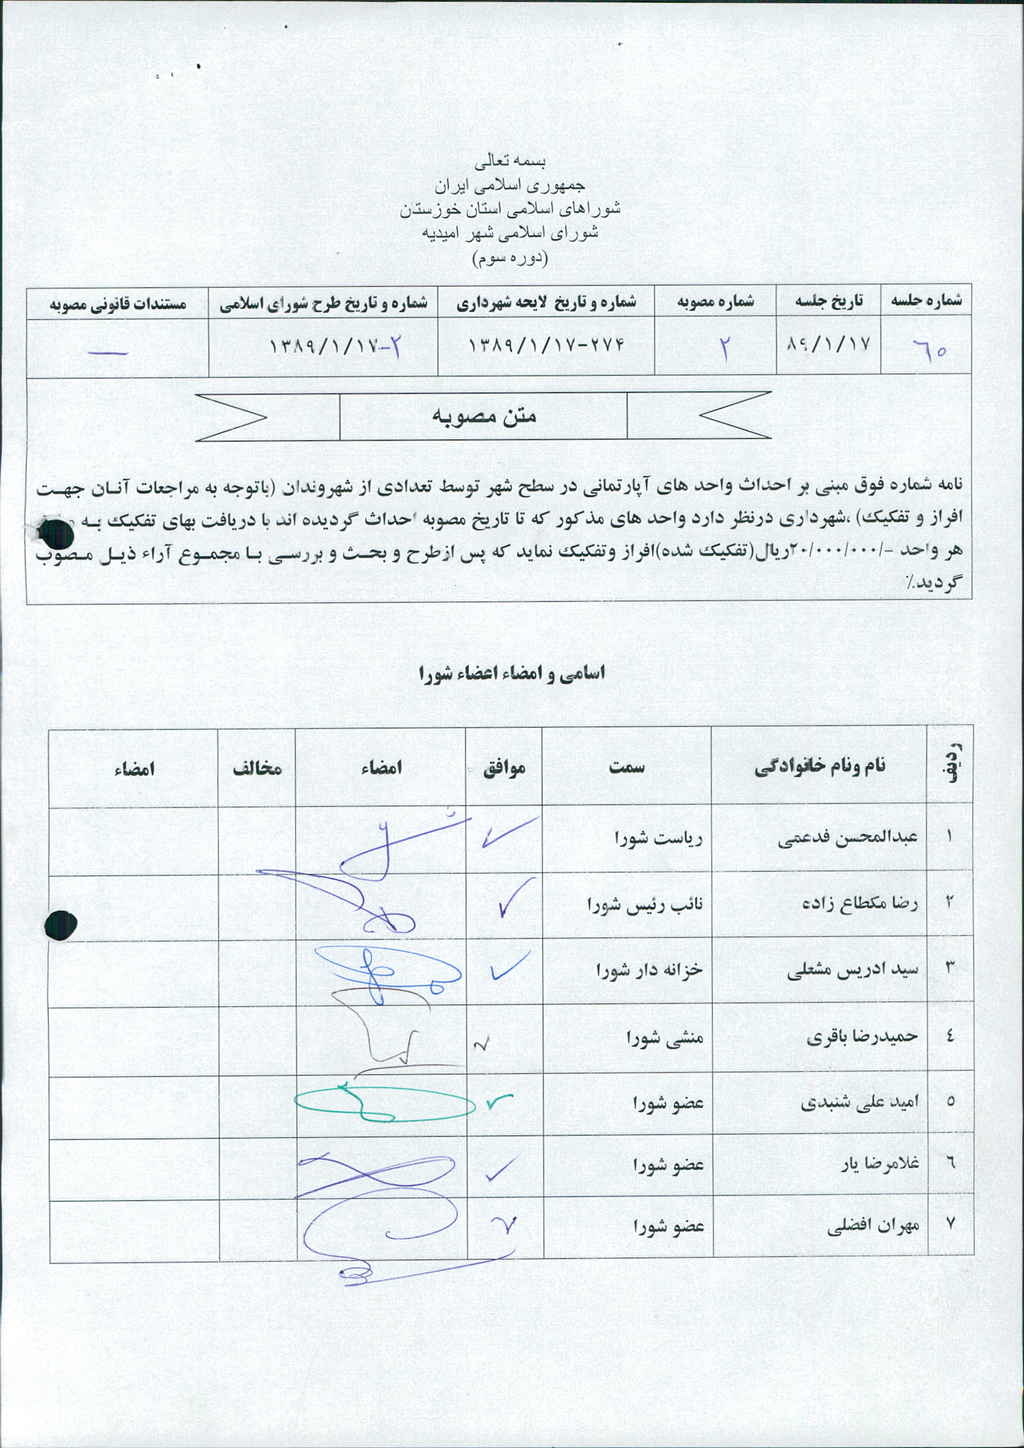 بسمه تعالی
جمهوری اسلامی ایران
شوراهای اسلامی استان خوزستان
شورای اسلامی شهر امیدیه
(دوره سوم)
شماره جلسه تاریخ جلسه شماره مصوبه شماره و تاریخ لایحه شهرداری شماره و تاریخ طرح شورای اسلامی مستندات قانونی مصوبه
٦٠ ۸۹/۱/۱۷ ۲ ۱۳۸۹/۱/۱۷-۲۷۴ ۱۳۸۹/۱/۱۷-۲ —
متن مصوبه
نامه شماره فوق مبنی بر احداث واحد های آپارتمانی در سطح شهر توسط تعدادی از شهروندان (باتوجه به مراجعات آنـان جهـت
افراز و تفکیک) ،شهرداری درنظر دارد واحد های مذکور که تا تاریخ مصوبه احداث گردیده اند با دریافت بهای تفکیک بـه
هر واحد -/۲۰/۰۰۰/۰۰۰ریال(تفکیک شده)افراز وتفکیک نماید که پس ازطرح و بحـث و بررسـی بـا مجمـوع آراء ذیـل مـصوب
گردید.٪
اسامی و امضاء اعضاء شورا
ردیف نام ونام خانوادگی سمت موافق امضاء مخالف امضاء
۱ عبدالمحسن فدعمی ریاست شورا
۲ رضا مکطاع زاده نائب رئیس شورا
۳ سید ادریس مشعلی خزانه دار شورا
٤ حمیدرضا باقری منشی شورا
٥ امید علی شنبدی عضو شورا
٦ غلامرضا یار عضو شورا
۷ مهران افضلی عضو شورا